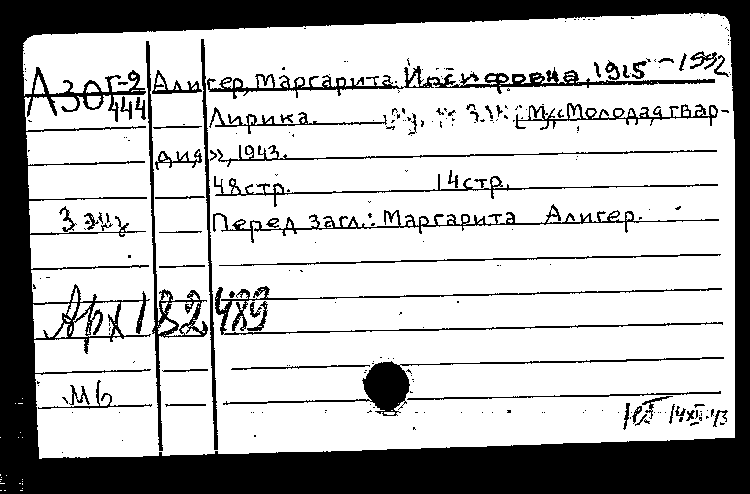 А30 Г-2 Алигер, Маргарита Иосифовна, 1915 -1992
444
Лирика. [М], «Молодая гвар-
дия», 1943.
48стр. 14стр.
3 экз Перед загл.: Маргарита Алигер.
Арх 182 489
МБ
14 XII-43